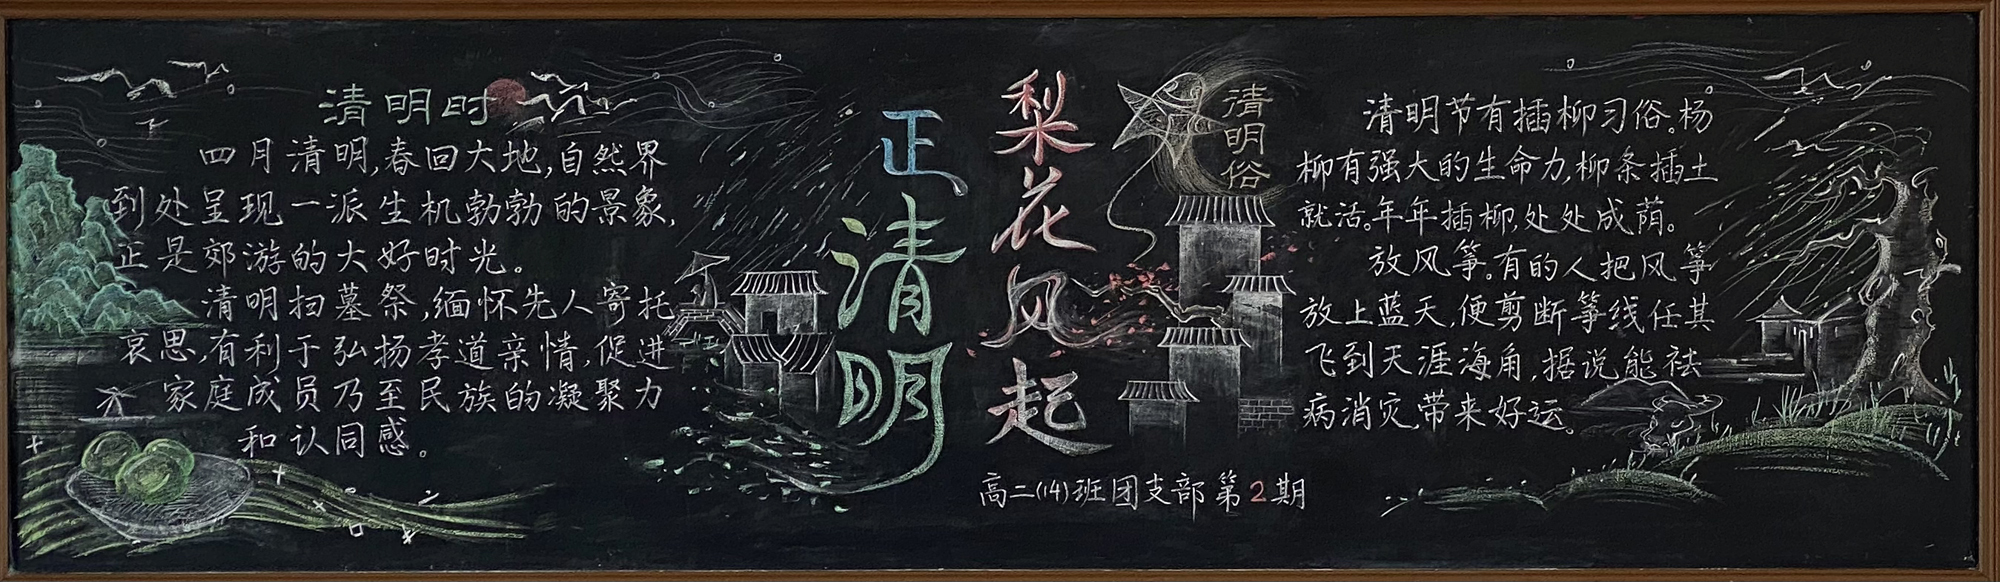 清明时
四月清明,春回大地,自然界
到处呈现一派生机勃勃的景象,
正是郊游的大好时光。
清明扫墓祭,缅怀先人寄托
哀思,有利于弘扬孝道亲情,促进
家庭成员乃至民族的凝聚力
和认同感。
梨花风起
正清明
高二(14)班团支部第2期
清明俗
清明节有插柳习俗。杨
柳有强大的生命力,柳条插土
就活。年年插柳,处处成荫。
放风筝。有的人把风筝
放上蓝天,便剪断筝线任其
飞到天涯海角,据说能祛
病消灾,带来好运。